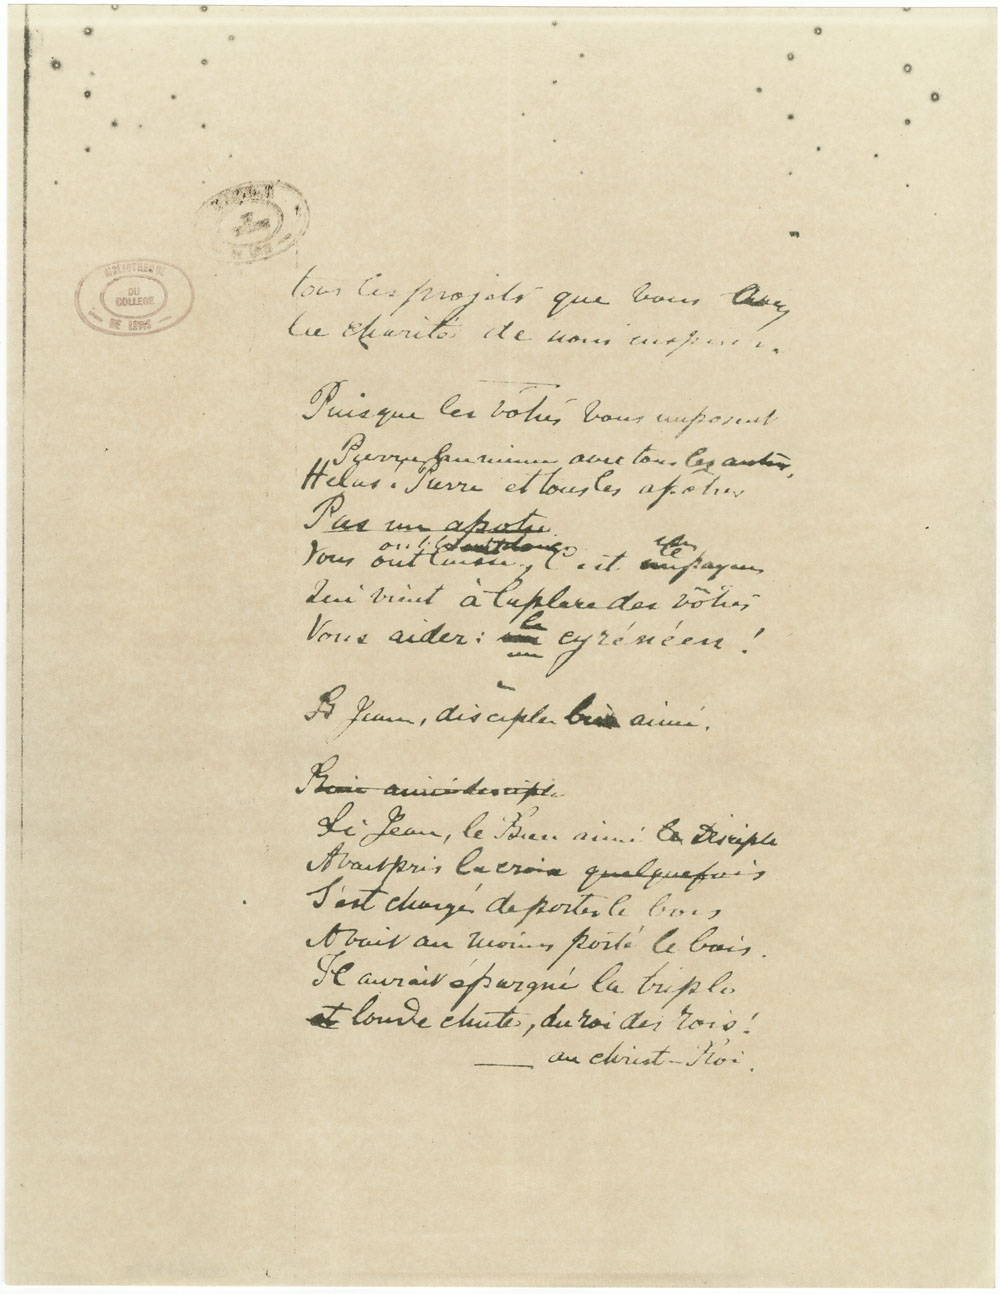 BIBLIOTHEQUE
DU
COLLEGE
DE LEVIS
DE LEVIS
tous les projets que vous avez
la charité de nous inspirer.
Puisque les vôtres vous imposent
Pierre lui même avec tous les autres,
Hélas! Pierre et tous les apôtres
Pas un apôtre
ont
Vous ont laissé, C'est payen
Qui vint à la place des vôtres
le
Vous aider: un cyrénéen!
un
St Jean, disciple bien aimé.
Bien aimé disciple
Si Jean, le Bien aimé le Disciple
Avait pris la croix quelquefois
S'est chargé de porter le bois
Avait au moins porté le bois.
Il aurait épargné la triple
et lourde chute, du roi des rois!
au christ-Roi.